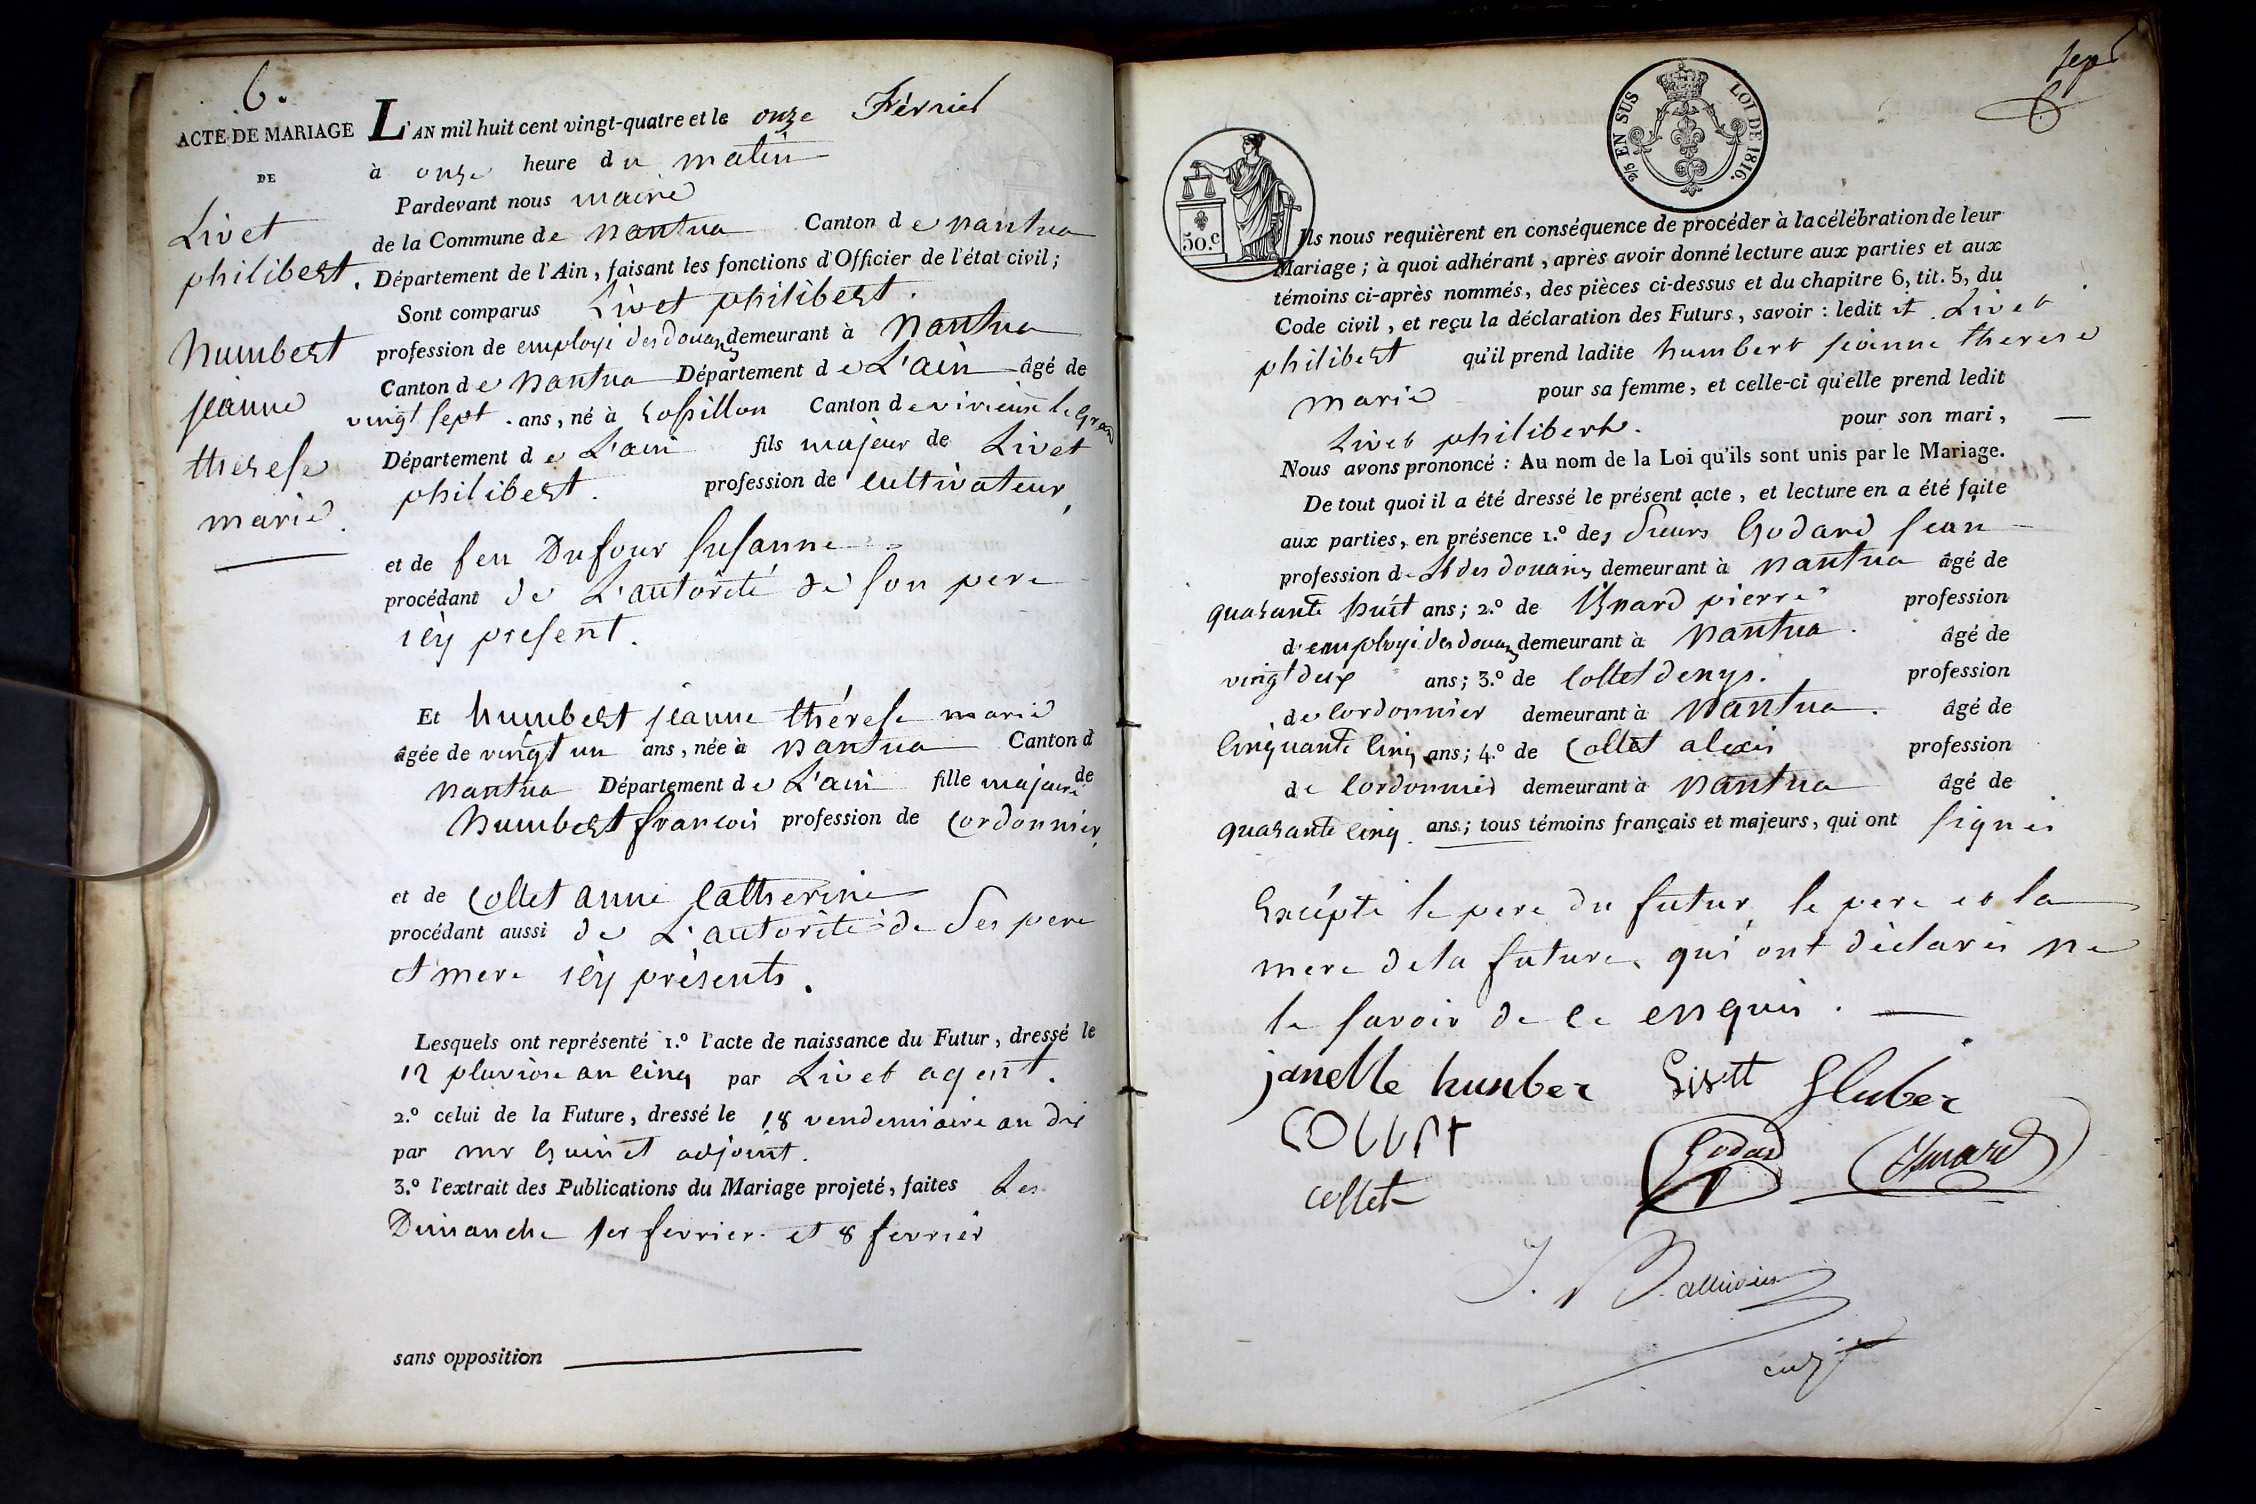 6.
ACTE DE MARIAGE
DE
Livet
philibert.
humbert
jeanne
therese
marie.
L'AN mil huit cent vingt-quatre et le onze Février
à onze heure du matin
Pardevant nous maire
de la Commune de nantua Canton de nantua
Département de l'Ain, faisant les fonctions d'Officier de l'état civil;
Sont comparus Livet philibert.
profession de employé des douanes demeurant à nantua
Canton de nantua Département de L'ain âgé de
vingt sept ans, né à Lossillon Canton de virieux le Grand
Département de L'ain fils majeur de Livet
philibert. profession de cultivateur,
et de feu Dufour Susanne
procédant de L'autorité de son pere
icy present.
Et humbert jeanne thérese marie
âgée de vingt un ans, née à nantua Canton d
nantua Département de L'ain fille majeure de
humbert francois profession de Cordonnier,
et de Collet anne Catherine
procédant aussi de L'autorité de Ses pere
et mere icy présents.
Lesquels ont représenté 1.º l'acte de naissance du Futur, dressé le
12 pluviose an cinq par Livet agent.
2.º celui de la Future, dressé le 18 vendemiaire an dix
par mr Guinet adjoint.
3.º l'extrait des Publications du Mariage projeté, faites Les
Dimanche 1er fevrier et 8 fevrier
sans opposition
sept
50.c
2/5 EN SUS LOI DE 1816.
Ils nous requièrent en conséquence de procéder à la célébration de leur
Mariage; à quoi adhérant, après avoir donné lecture aux parties et aux
témoins ci-après nommés, des pièces ci-dessus et du chapitre 6, tit. 5, du
Code civil, et reçu la déclaration des Futurs, savoir: ledit Livet
philibert qu'il prend ladite humbert jeanne therese
marie pour sa femme, et celle-ci qu'elle prend ledit
Livet philibert. pour son mari,
Nous avons prononcé: Au nom de la Loi qu'ils sont unis par le Mariage.
De tout quoi il a été dressé le présent acte, et lecture en a été faite
aux parties, en présence 1.º des Sieurs Godard Jean
profession de Lt des douanes demeurant à nantua âgé de
quarante huit ans; 2.º de Isnard pierre profession
d'employé des douanes demeurant à nantua. âgé de
vingt deux ans; 3.º de Collet denys. profession
de Cordonnier demeurant à nantua. âgé de
Cinquante Cinq ans; 4.º de Collet alexis profession
de Cordonnier demeurant à nantua âgé de
quarante cinq. ans; tous témoins français et majeurs, qui ont signés
Excépté le pere du futur, le pere et la
mere de la future, qui ont déclarés ne
le savoir de ce enquis.
janette hunber
collet
Godard
Isnard